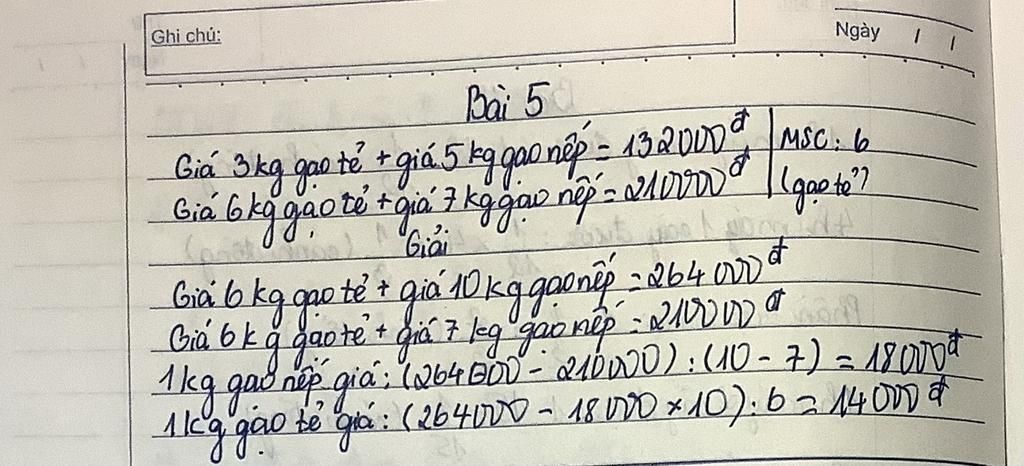 Ghi chú:
Ngày / /
Bài 5
Giá 3kg gạo tẻ + giá 5 kg gạo nếp = 132000đ | MSC: 6
Giá 6kg gạo tẻ + giá 7kg gạo nếp = 210000đ | (gạo tẻ)
Giải
Giá 6 kg gạo tẻ + giá 10 kg gạo nếp = 264 000đ
Giá 6 kg gạo tẻ + giá 7 kg gạo nếp = 210000đ
1kg gạo nếp giá: (264000 - 210000) : (10 - 7) = 18000đ
1kg gạo tẻ giá: (264000 - 18000 × 10) : 6 = 14000đ